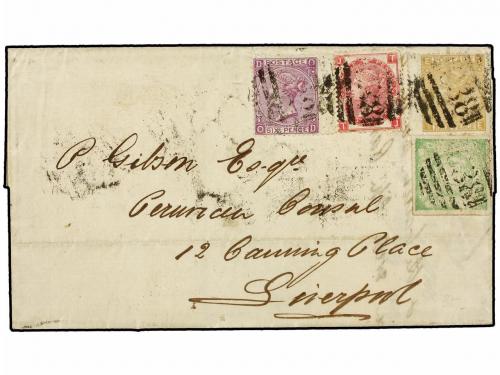 POSTAGE
SIX PENCE
P. Gibson Esqre
Peruvian Consul
12 Canning Place
Liverpool